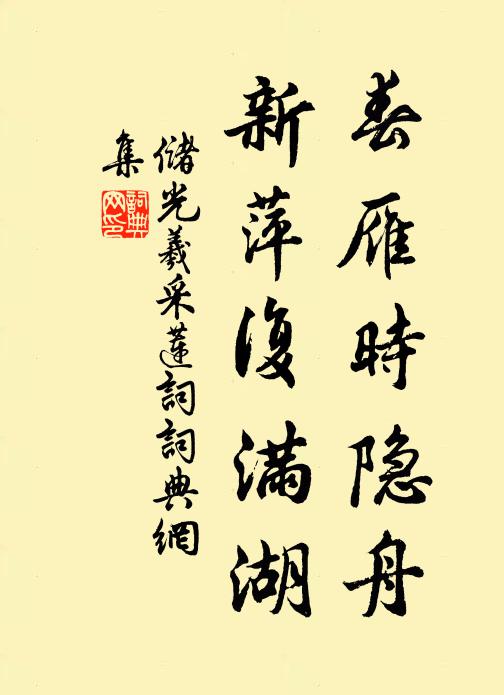 春雁時隐舟
新萍復满湖
儲光羲采蓮詞詞典網
集
詞典网印